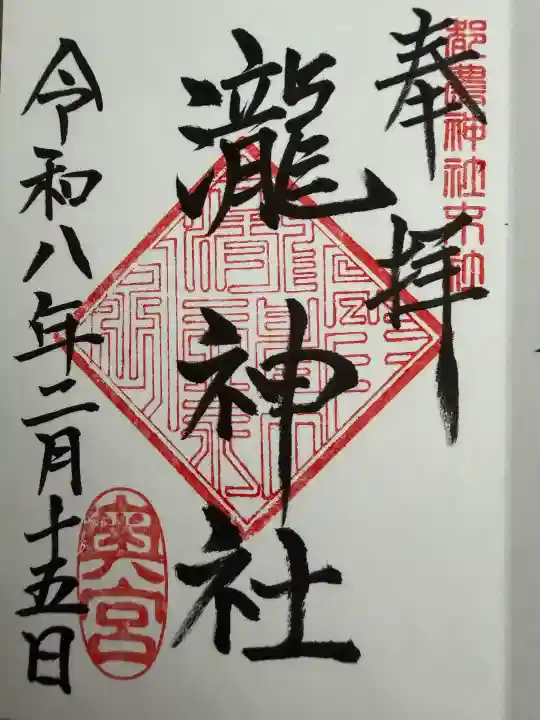 都農神社末社
奉拝
瀧神社
奥宮
令和八年二月十五日